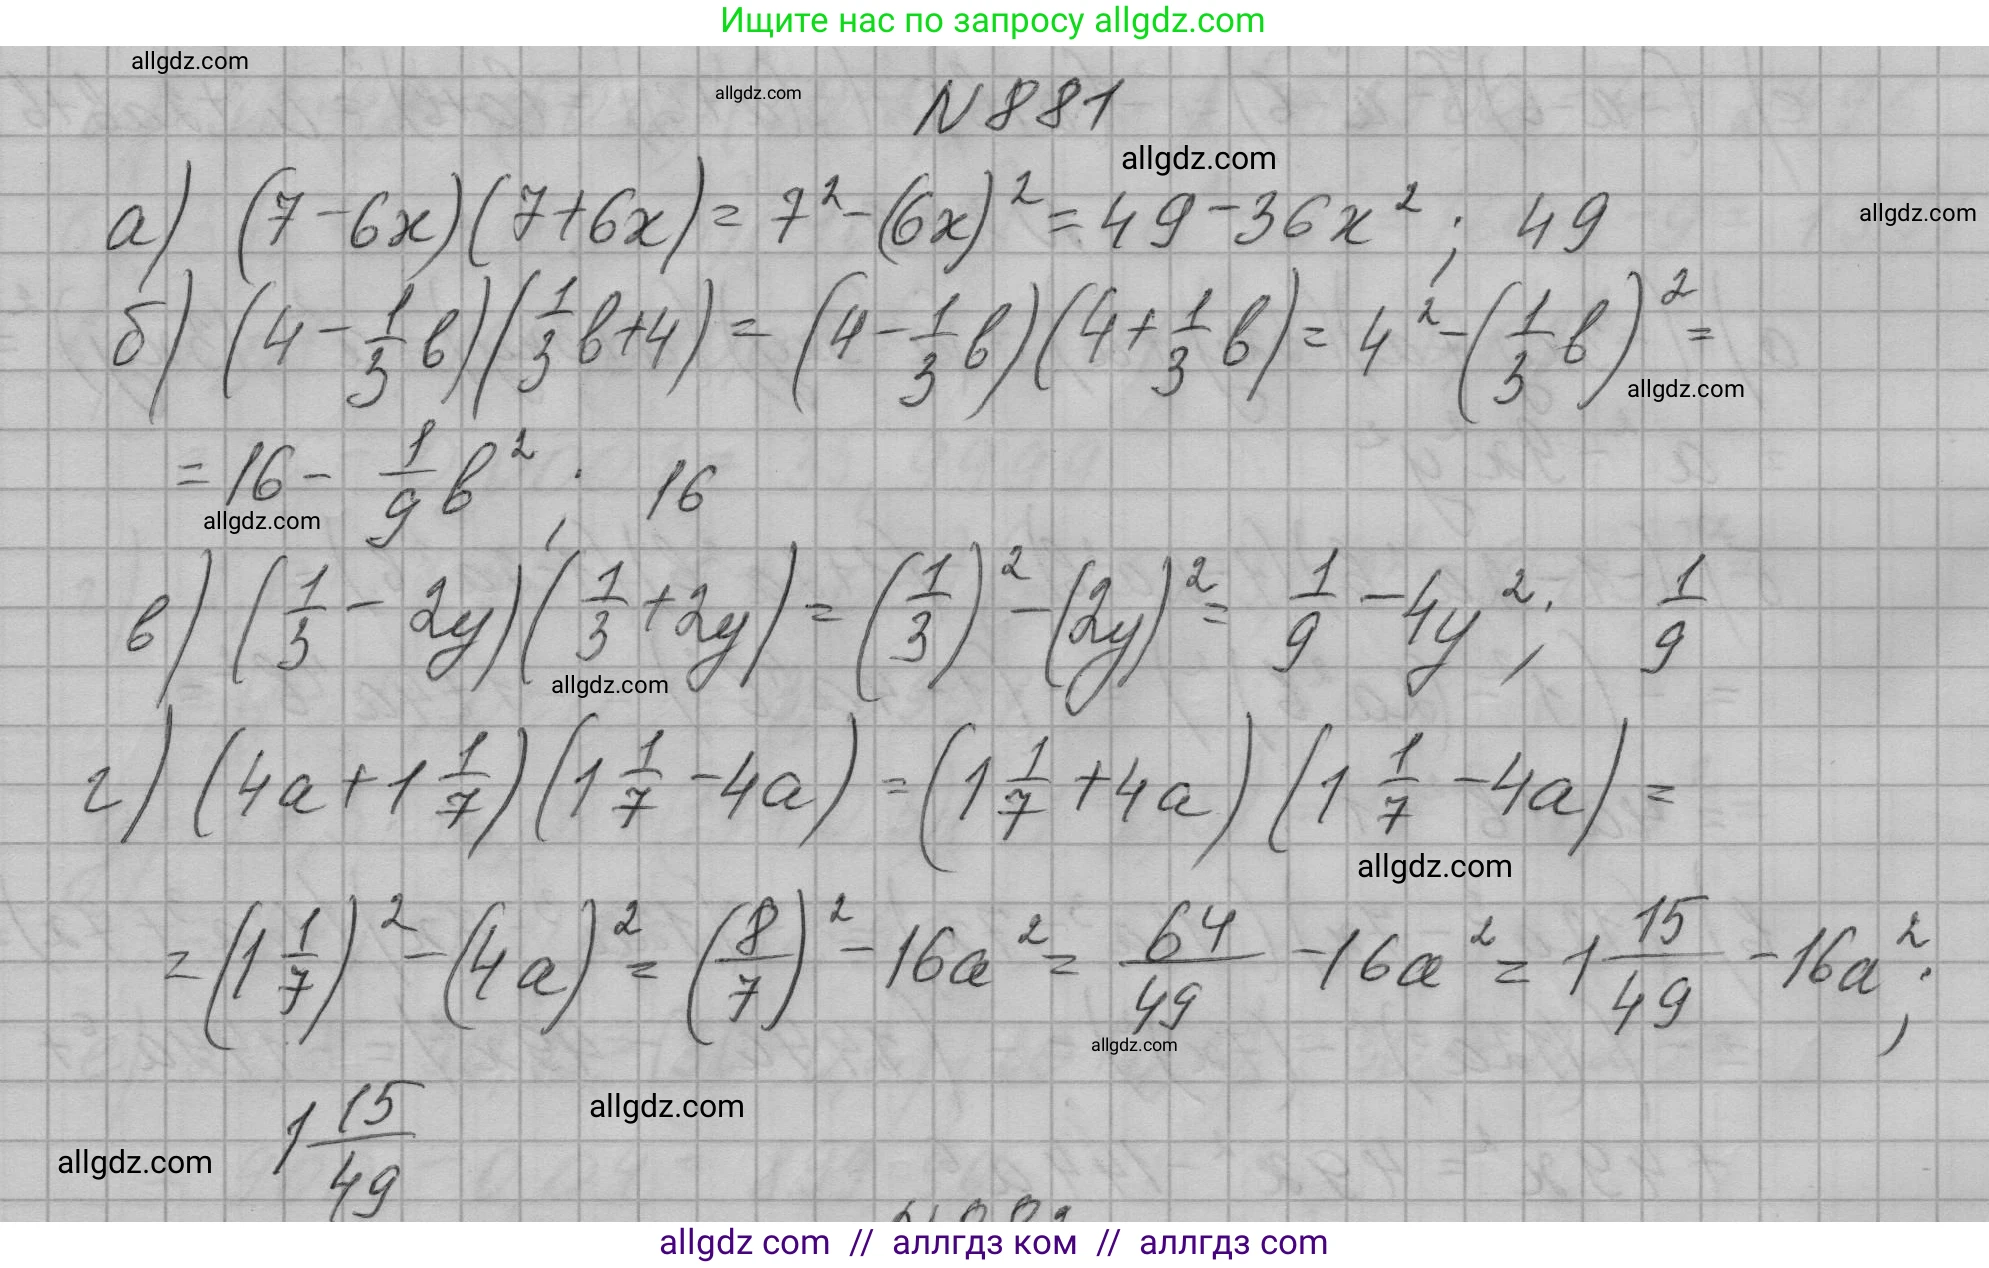 Ищите нас по запросу allgdz.com
allgdz.com
allgdz.com
N 881
allgdz.com
а) (7-6x)(7+6x) = 7² - (6x)² = 49 - 36x²; 49
allgdz.com
б) (4 - 1/3 b)(1/3 b + 4) = (4 - 1/3 b)(4 + 1/3 b) = 4² - (1/3 b)² =
allgdz.com
= 16 - 1/9 b²; 16
allgdz.com
в) (1/3 - 2y)(1/3 + 2y) = (1/3)² - (2y)² = 1/9 - 4y²; 1/9
allgdz.com
г) (4a + 1 1/7)(1 1/7 - 4a) = (1 1/7 + 4a)(1 1/7 - 4a) =
allgdz.com
= (1 1/7)² - (4a)² = (8/7)² - 16a² = 64/49 - 16a² = 1 15/49 - 16a²;
allgdz.com
1 15/49
allgdz.com
allgdz.com
allgdz com // аллгдз ком // аллгдз com